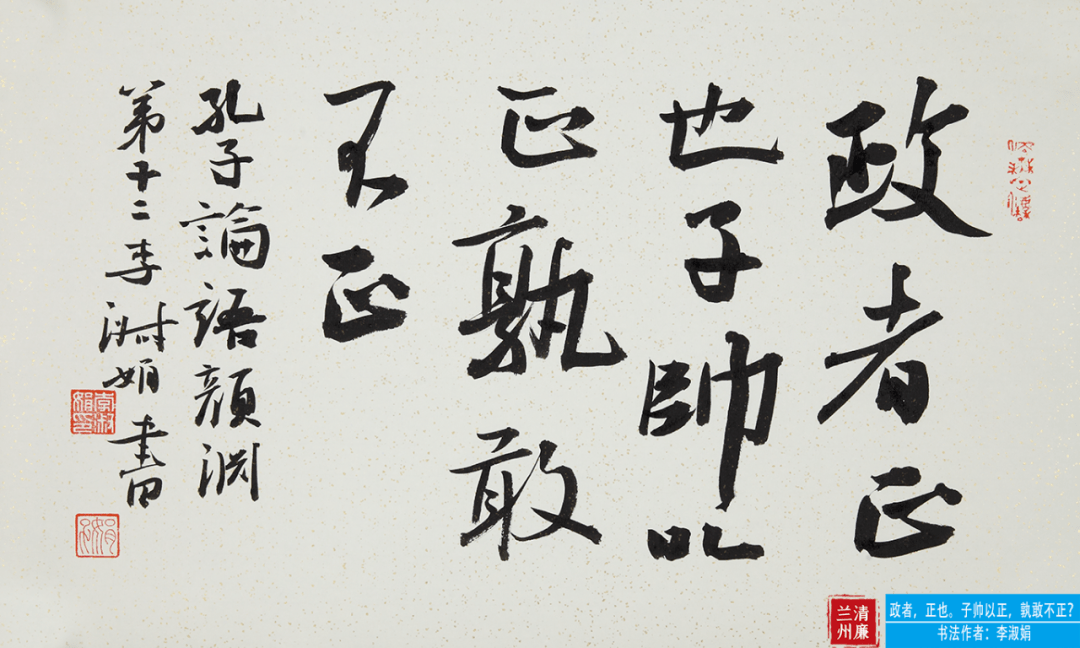 政者正
也子帥以
正孰敢
不正
孔子論語顏淵
第十二李淑娟書
李淑娟印
清廉兰州
政者，正也。子帅以正，孰敢不正？
书法作者：李淑娟